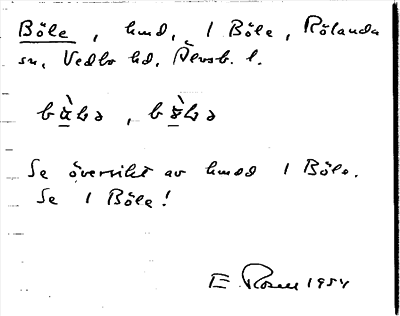 Böle, hmd, 1 Böle, Rölanda
sn, Vedbo hd, Älvsb. l.
Se översikt av hmd 1 Böle.
Se 1 Böle!
E. Rosell 1954